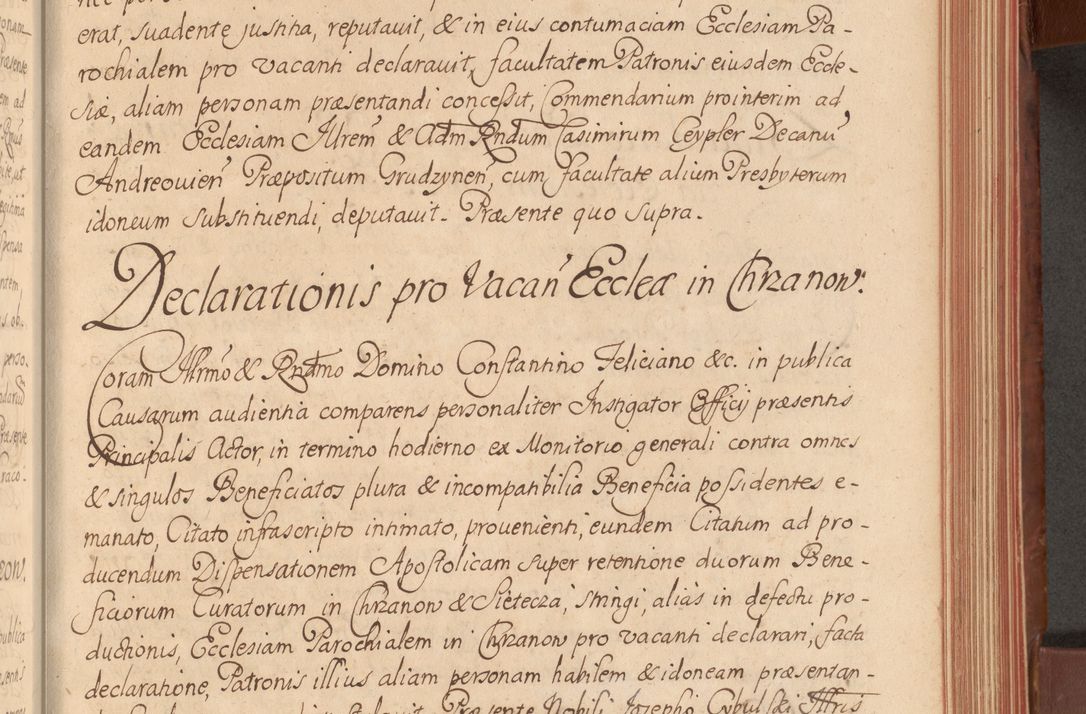 erat, suadente justitia, reputauit, & in eius contumaciam Ecclesiam Pa-
rochialem pro vacanti declarauit, facultatem Patronis eiusdem Eccle-
siæ, aliam personam præsentandi concessit, Commendarium prointerim ad
eandem Ecclesiam Illrem̃ & Adm̃ Rndum Casimirum Ceypler Decanũ
Andreouien̄ Præpositum Grudzynen̄, cum facultate alium Presbyterum
idoneum substituendi, deputauit. Præsente quo supra.
Declarationis pro Vacan̄ Eccleæ in Chrzanow.
Coram Illrmo & Rndmo Domino Constantino Feliciano &c. in publica
Causarum audientia comparens personaliter Instigator Officij præsentis
Principalis Actor, in termino hodierno ex Monitorio generali contra omnes
& singulos Beneficiatos plura & incompatibilia Beneficia possidentes e-
manato, Citato infrascripto intimato, prouenienti, eundem Citatum ad pro-
ducendum Dispensationem Apostolicam super retentione duorum Bene-
ficiorum Curatorum in Chrzanow & Sietecza, stringi, alias in defectu pro-
ductionis, Ecclesiam Parochialem in Chrzanow pro vacanti declarari, facta
declaratione, Patronis illius aliam personam habilem & idoneam præsentan-
Præsente Nobili Josepho Cybulski Illris